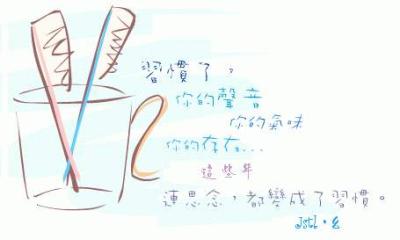 習慣了，
你的聲音
你的氣味
你的存在...
這些年
連思念，都變成了習慣。